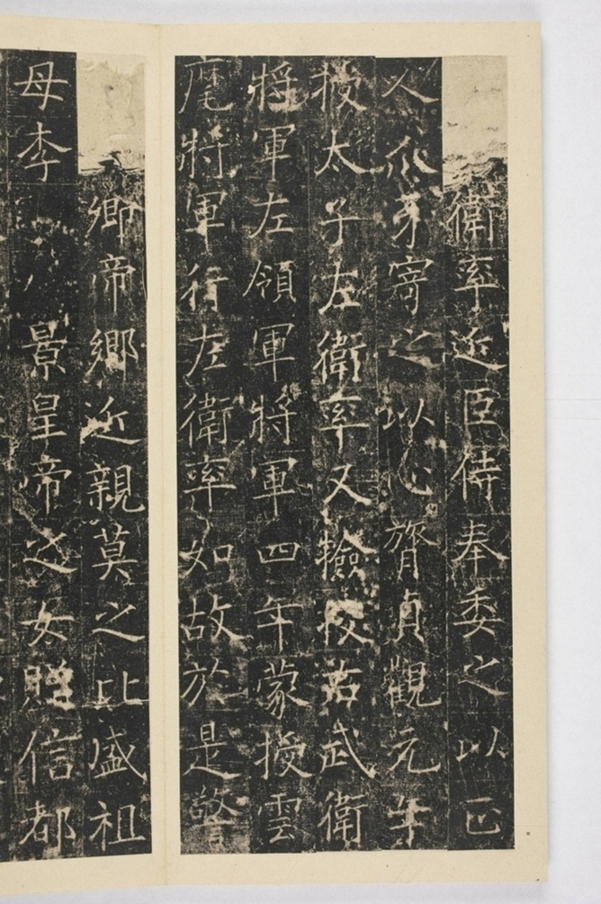 衛率近臣侍奉委之以正
人爪牙寄之以心膂貞觀元年
授太子左衛率又檢校右武衛
將軍左領軍將軍四年蒙授雲
麾將軍行左衛率如故於是警
卿帝鄉近親莫之比盛祖
母李景皇帝之女贈信都